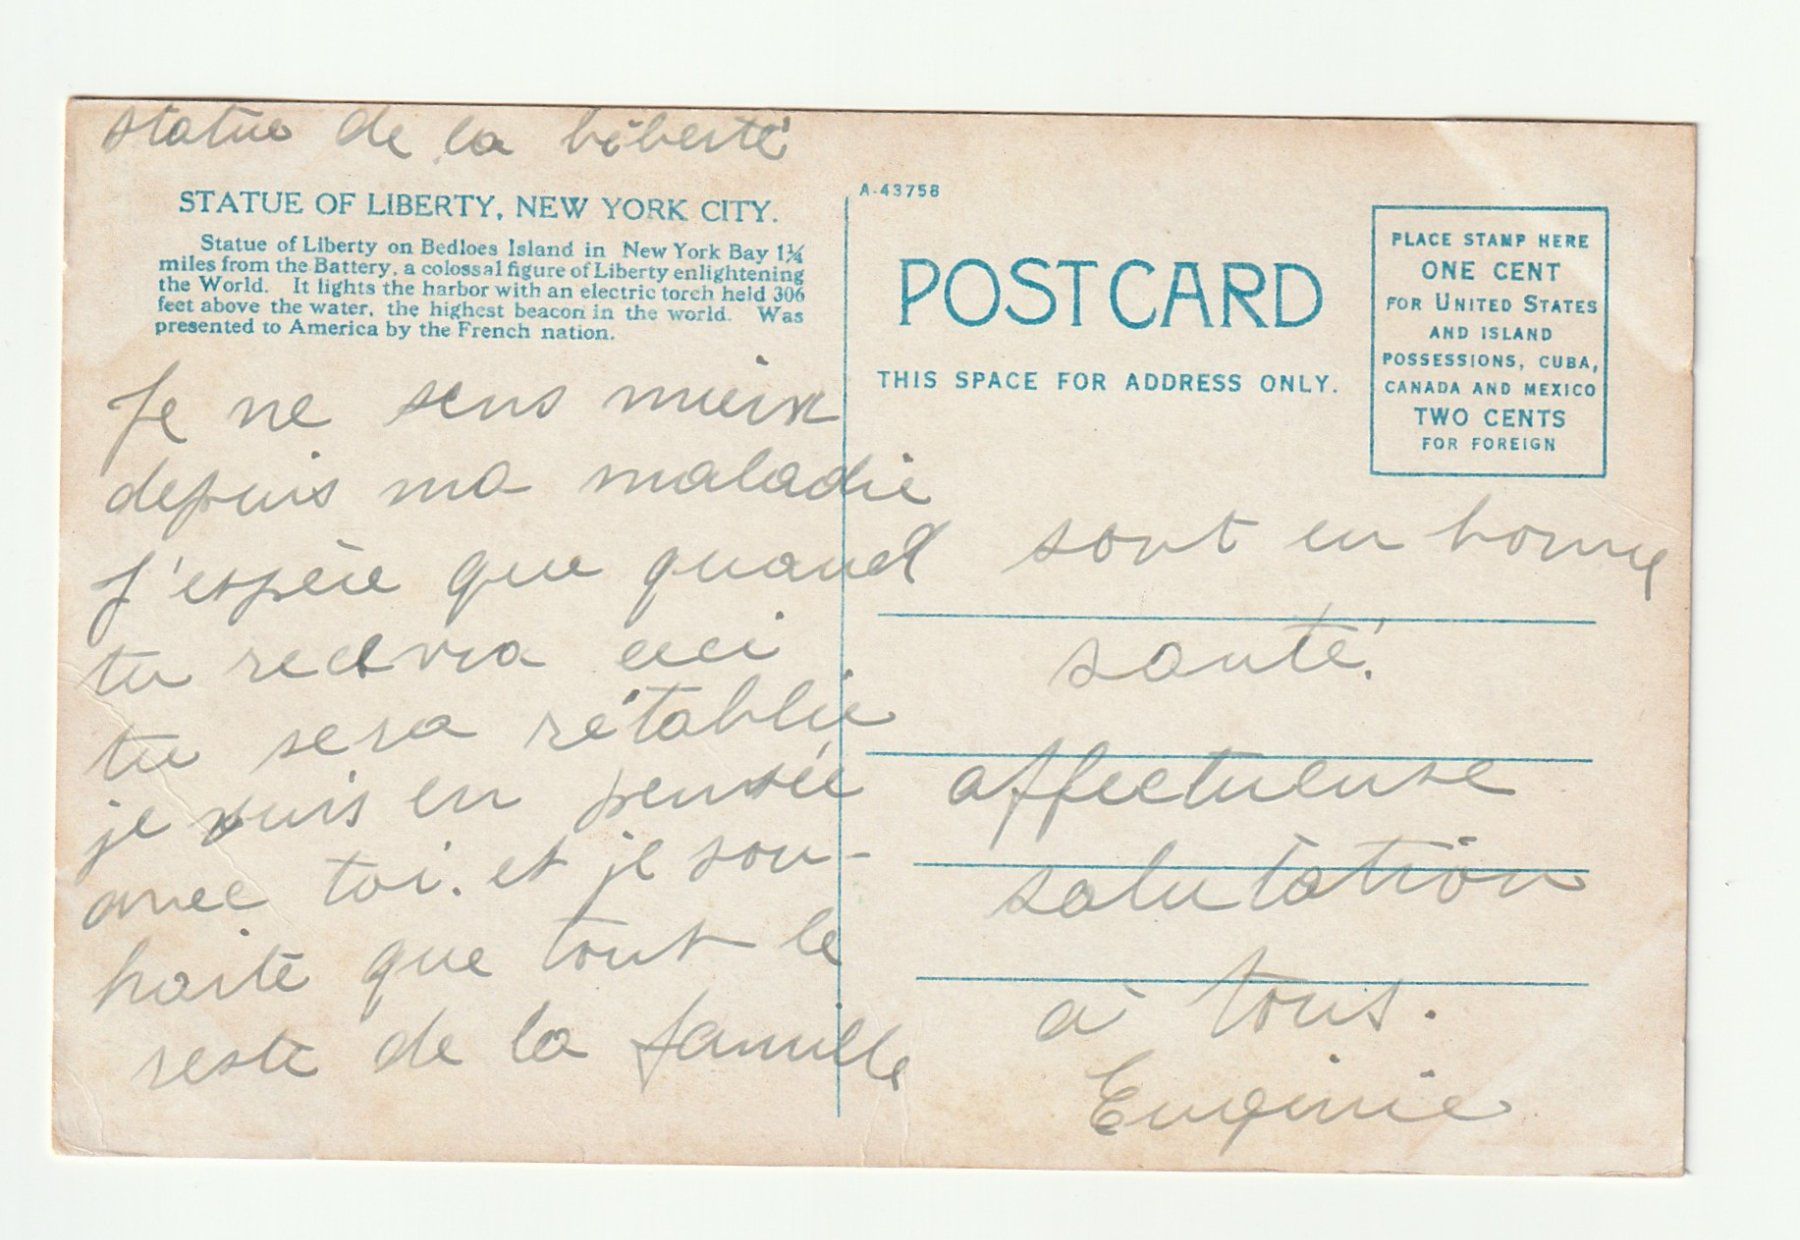 statue de la liberté
STATUE OF LIBERTY, NEW YORK CITY.
Statue of Liberty on Bedloes Island in New York Bay 1¼
miles from the Battery, a colossal figure of Liberty enlightening
the World. It lights the harbor with an electric torch held 306
feet above the water, the highest beacon in the world. Was
presented to America by the French nation.
Je ne sens mieix
depuis ma maladie
J'espère que quand
tu recevra ceci
tu sera rétablie
je suis en pensée
avec toi. et je sou-
haite que tout le
reste de la famille
A-43758
POST CARD
THIS SPACE FOR ADDRESS ONLY.
PLACE STAMP HERE
ONE CENT
FOR UNITED STATES
AND ISLAND
POSSESSIONS, CUBA,
CANADA AND MEXICO
TWO CENTS
FOR FOREIGN
sont en bonne
santé.
affectueuse
salutation
à tous.
Euginie